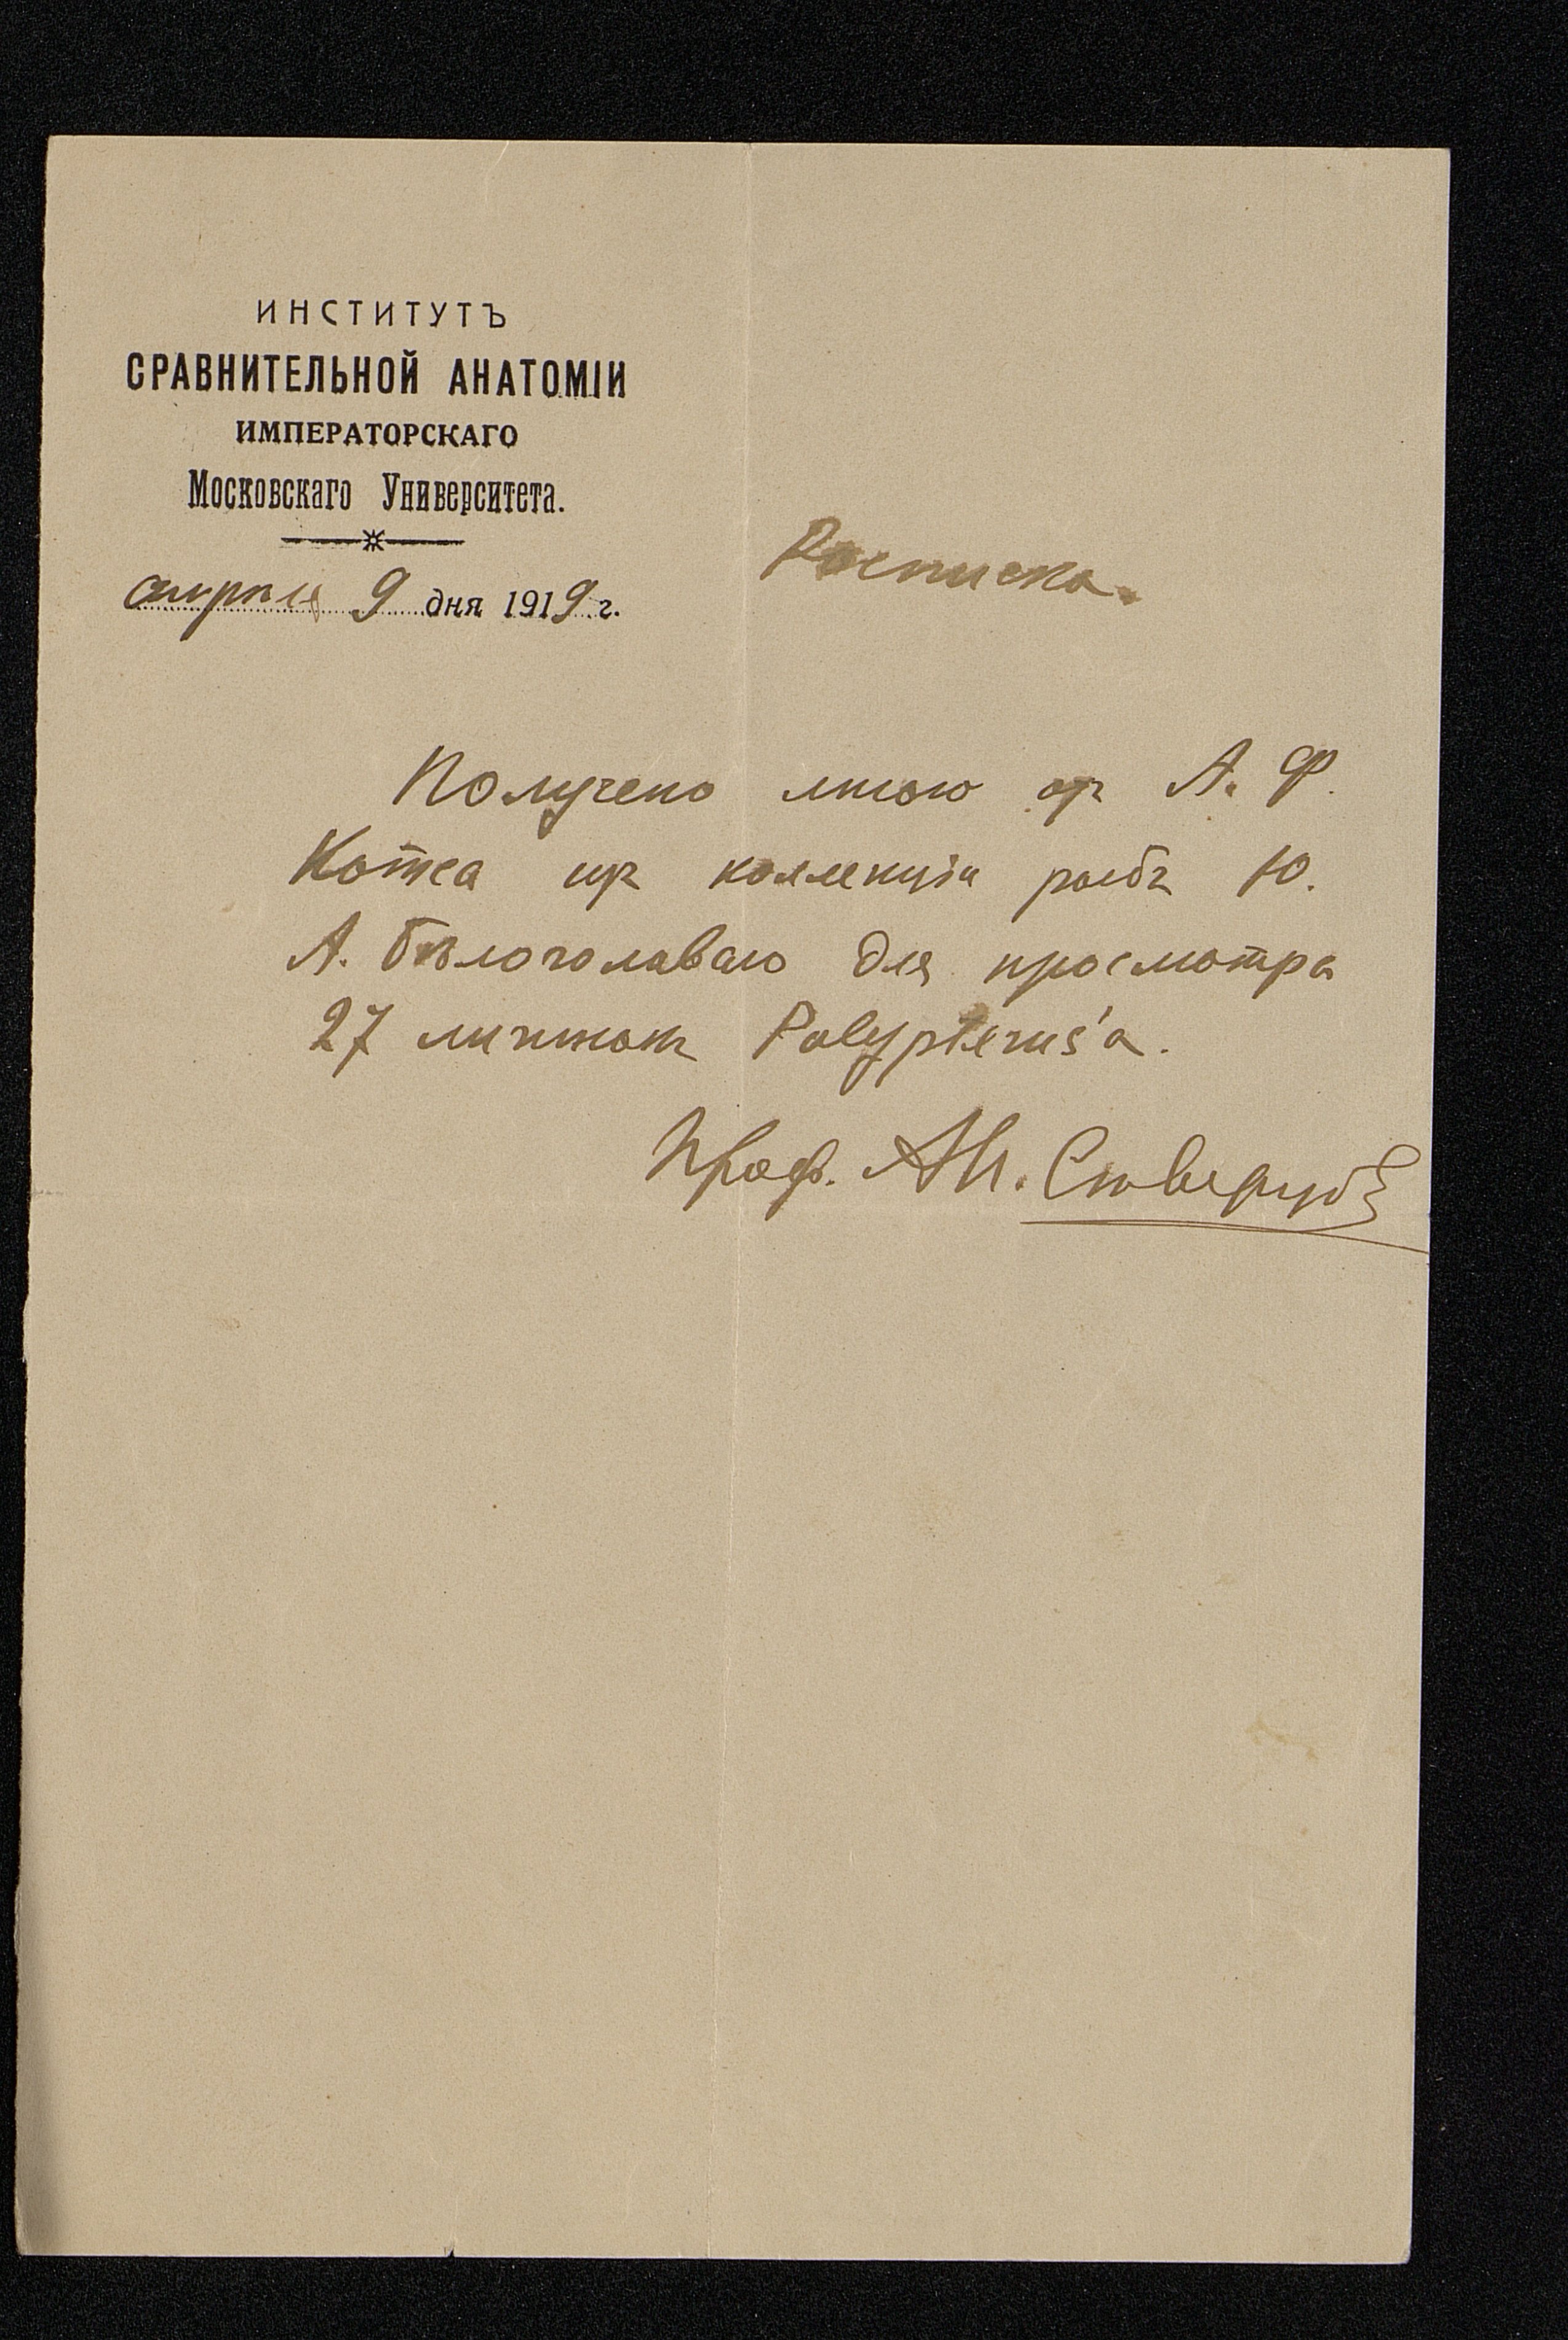 ИНСТИТУТЪ
СРАВНИТЕЛЬНОЙ АНАТОМІИ
ИМПЕРАТОРСКАГО
Московскаго Университета.
апрѣля 9 дня 1919 г.
Росписка.
Получено мною отъ А. Ф.
Котса изъ коллекціи рыбъ Ю.
А. Бѣлоголоваго для просмотра
27 личинокъ Polypterus'а.
Проф. АН. Сѣверцовъ